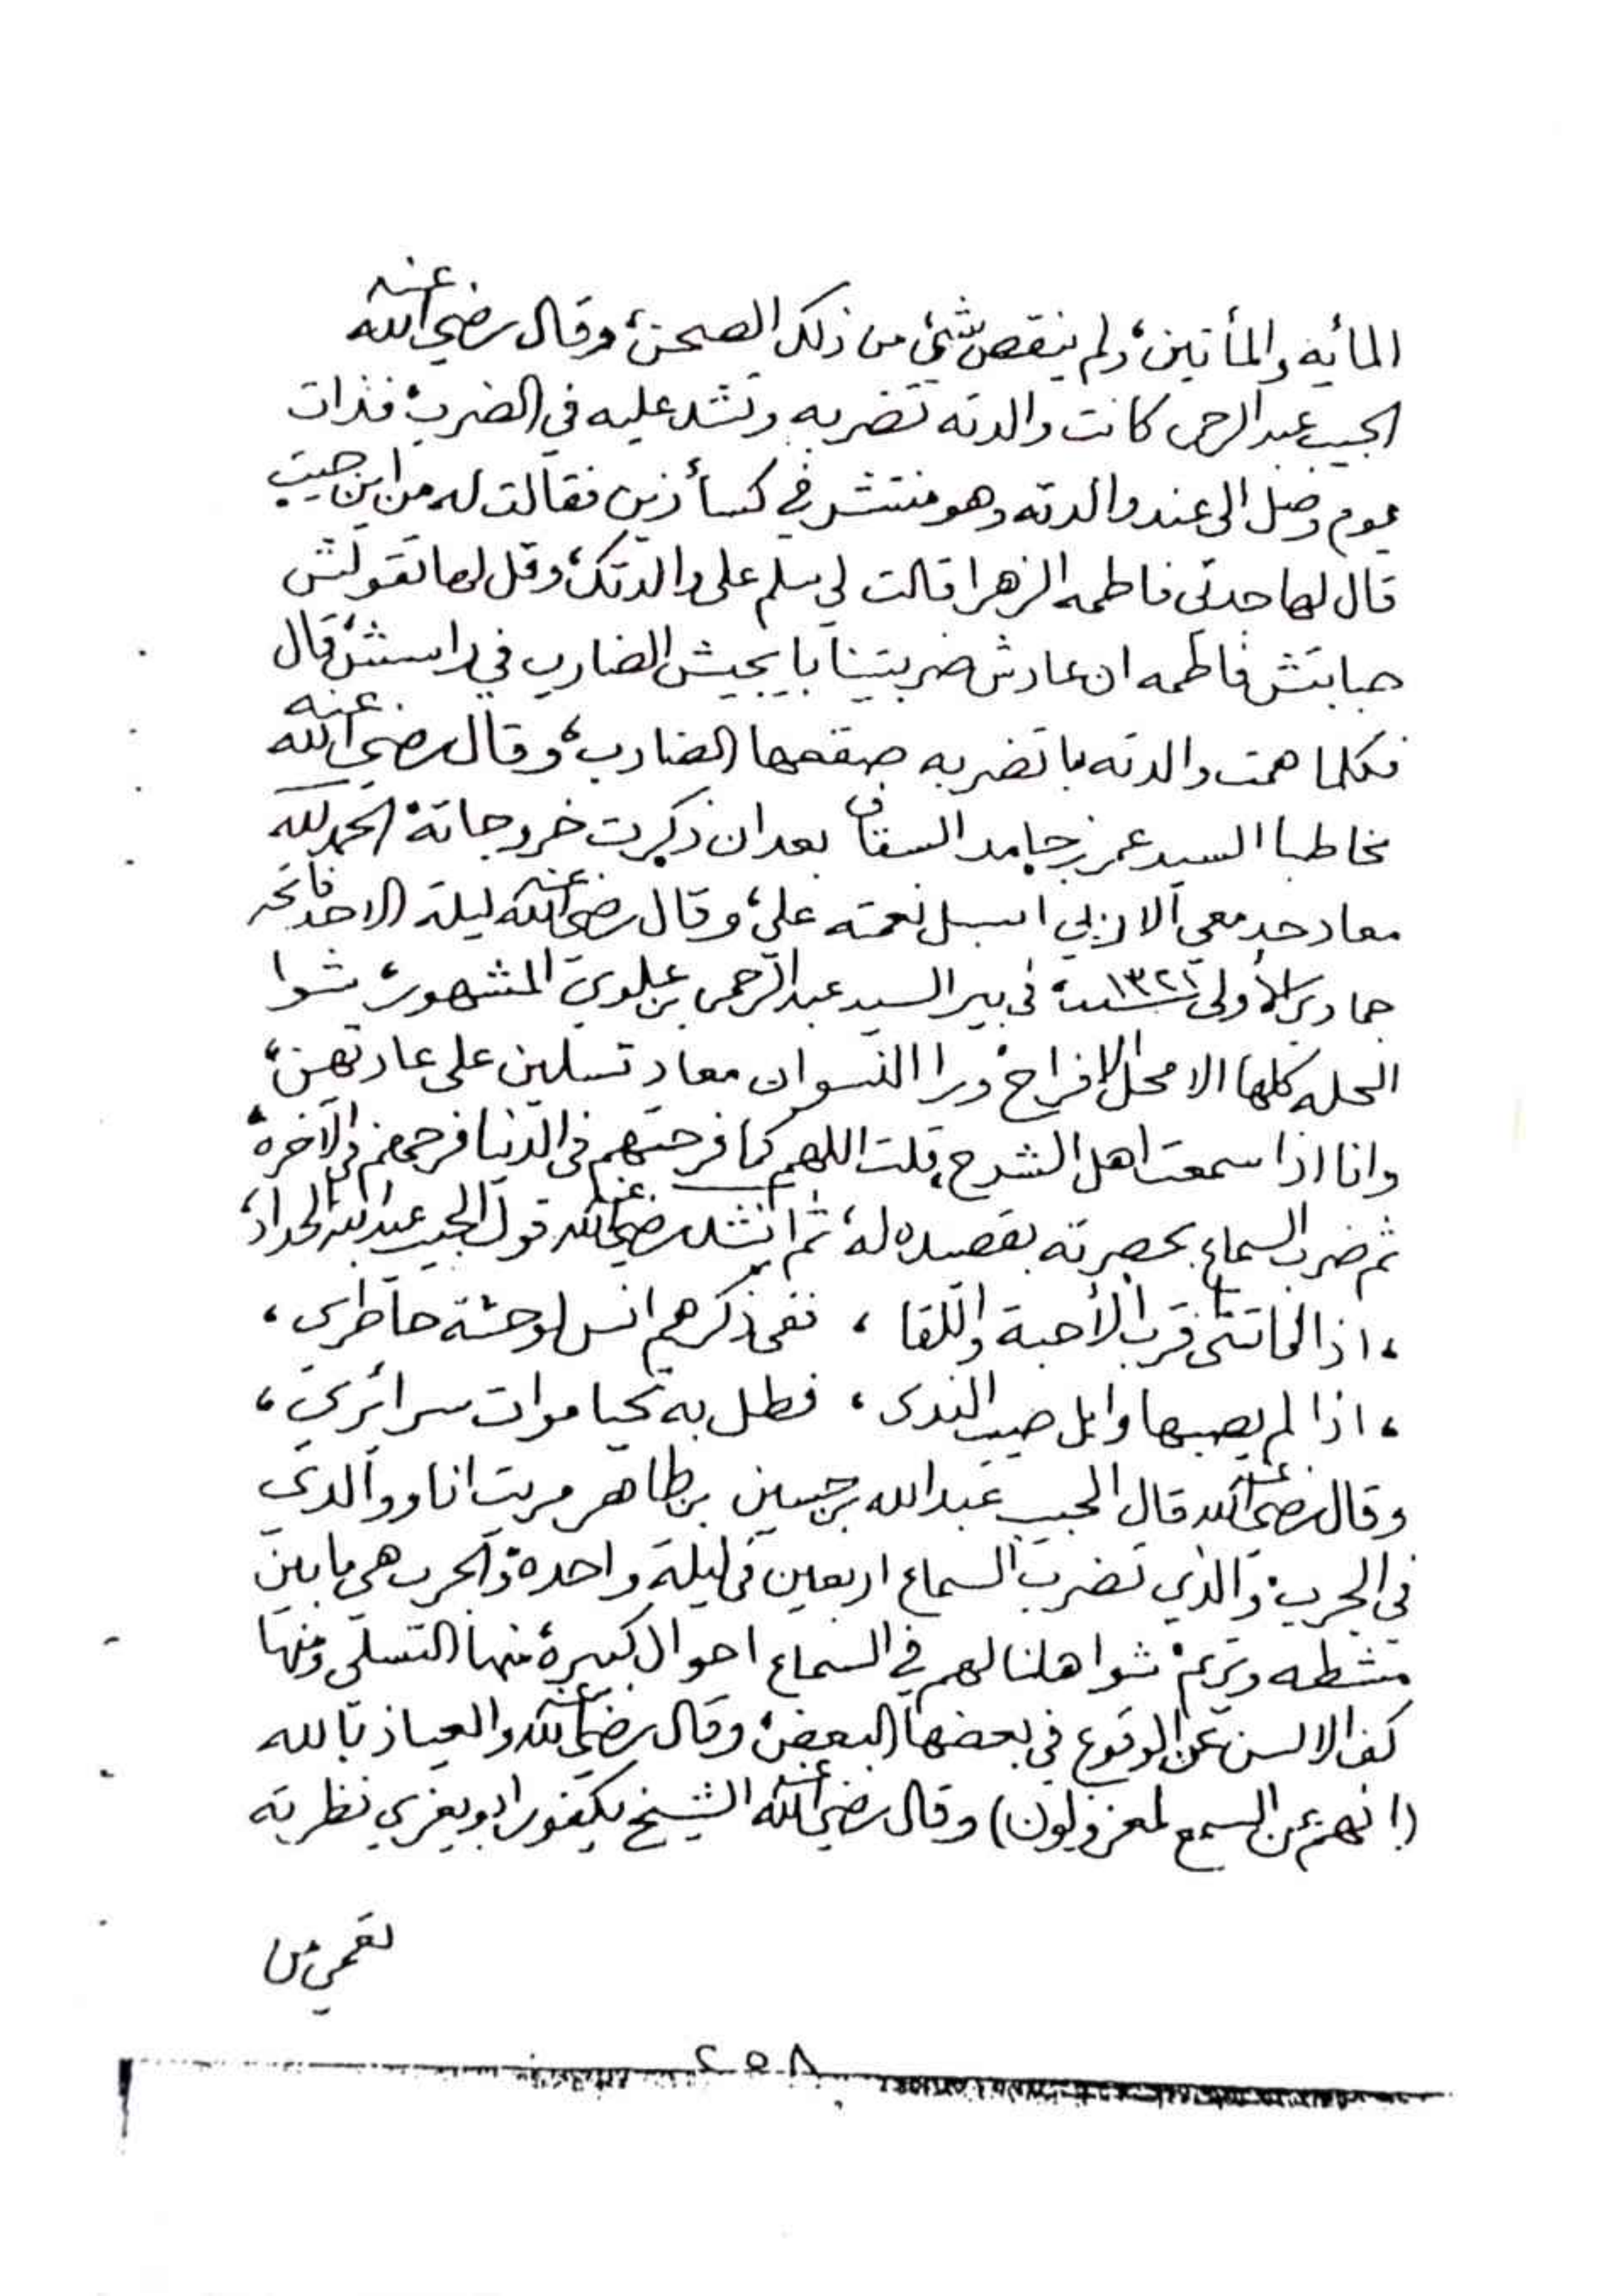 المأية والمأتين، ولم ينقص شئ من ذلك الصحن، وقال رضي الله عنه
الحبيب عبد الرحمن كانت والدته تضربه وتشد عليه في الضرب، فذات
يوم وصل الى عند والدته وهو منتشر في كسأ زين فقالت له من اين جيت
قال لها جدتي فاطمه الزهرا قالت لي سلم على والدتك، وقل لها تقولش
حبابتش فاطمه ان عادش ضربتينا با يجيش الضارب في راسش، قال
فكلما همت والدته با تضربه صقعها الضارب، وقال رضي الله عنه
مخاطبا السيد عمر بن حامد السقاف بعد ان ذكرت خروجاته، الحمد لله
معاد حد معي الا ربي اسبل نعمته علي، وقال رضي الله عنه ليلة الاحد فاتحة
جمادى الأولى سنة ١٣٢١ في بير السيد عبد الرحمن بن علوي المشهور، شوا
الحله كلها الا محل الافراح، ورا النسوان معاد تسلين على عادتهن،
وانا اذا سمعت اهل الشرح، قلت اللهم كما فرحتهم في الدنيا فرحهم في الآخرة،
ثم ضرب السماع بحضرته بقصيده له، ثم انشد رضي الله عنه قول الحبيب عبد الله الحداد،
، اذا فاتني قرب الأحبة واللقا ، ففي ذكرهم انس لوحشة خاطري ،
، اذا لم يصبها وابل صيب الندى ، فطل به تحيا موات سرائري ،
وقال رضي الله عنه قال الحبيب عبد الله بن حسين بن طاهر مريت انا ووالدي
في الجرب، والذي تضرب السماع اربعين في ليلة واحدة، والجرب هي ما بين
مشطه وتريم، شوا هلنا لهم في السماع احوال كبيرة، منها التسلي ومنها
كف الالسن عن الوقوع في بعضها البعض، وقال رضي الله عنه والعياذ بالله
(انهم عن السمع لمعزولون) وقال رضي الله عنه الشيخ يكفور ابو يعزي نظريته
تعمي من
٢٥٨